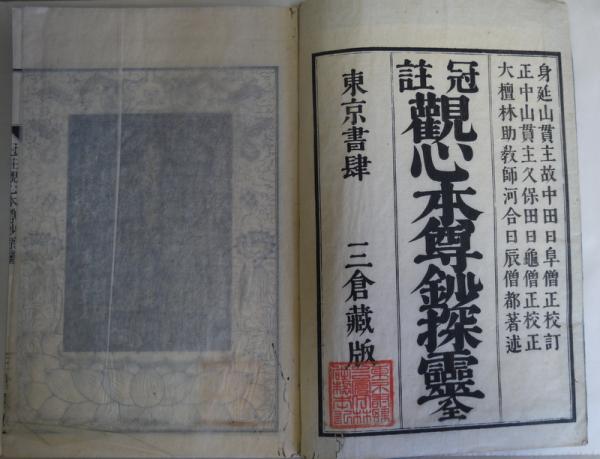 身延山貫主故中田日阜僧正校訂
正中山貫主久保田日龜僧正校正
大檀林助教師河合日辰僧都著述
冠註
觀心本尊鈔探靈 全
東京書肆 三倉藏版